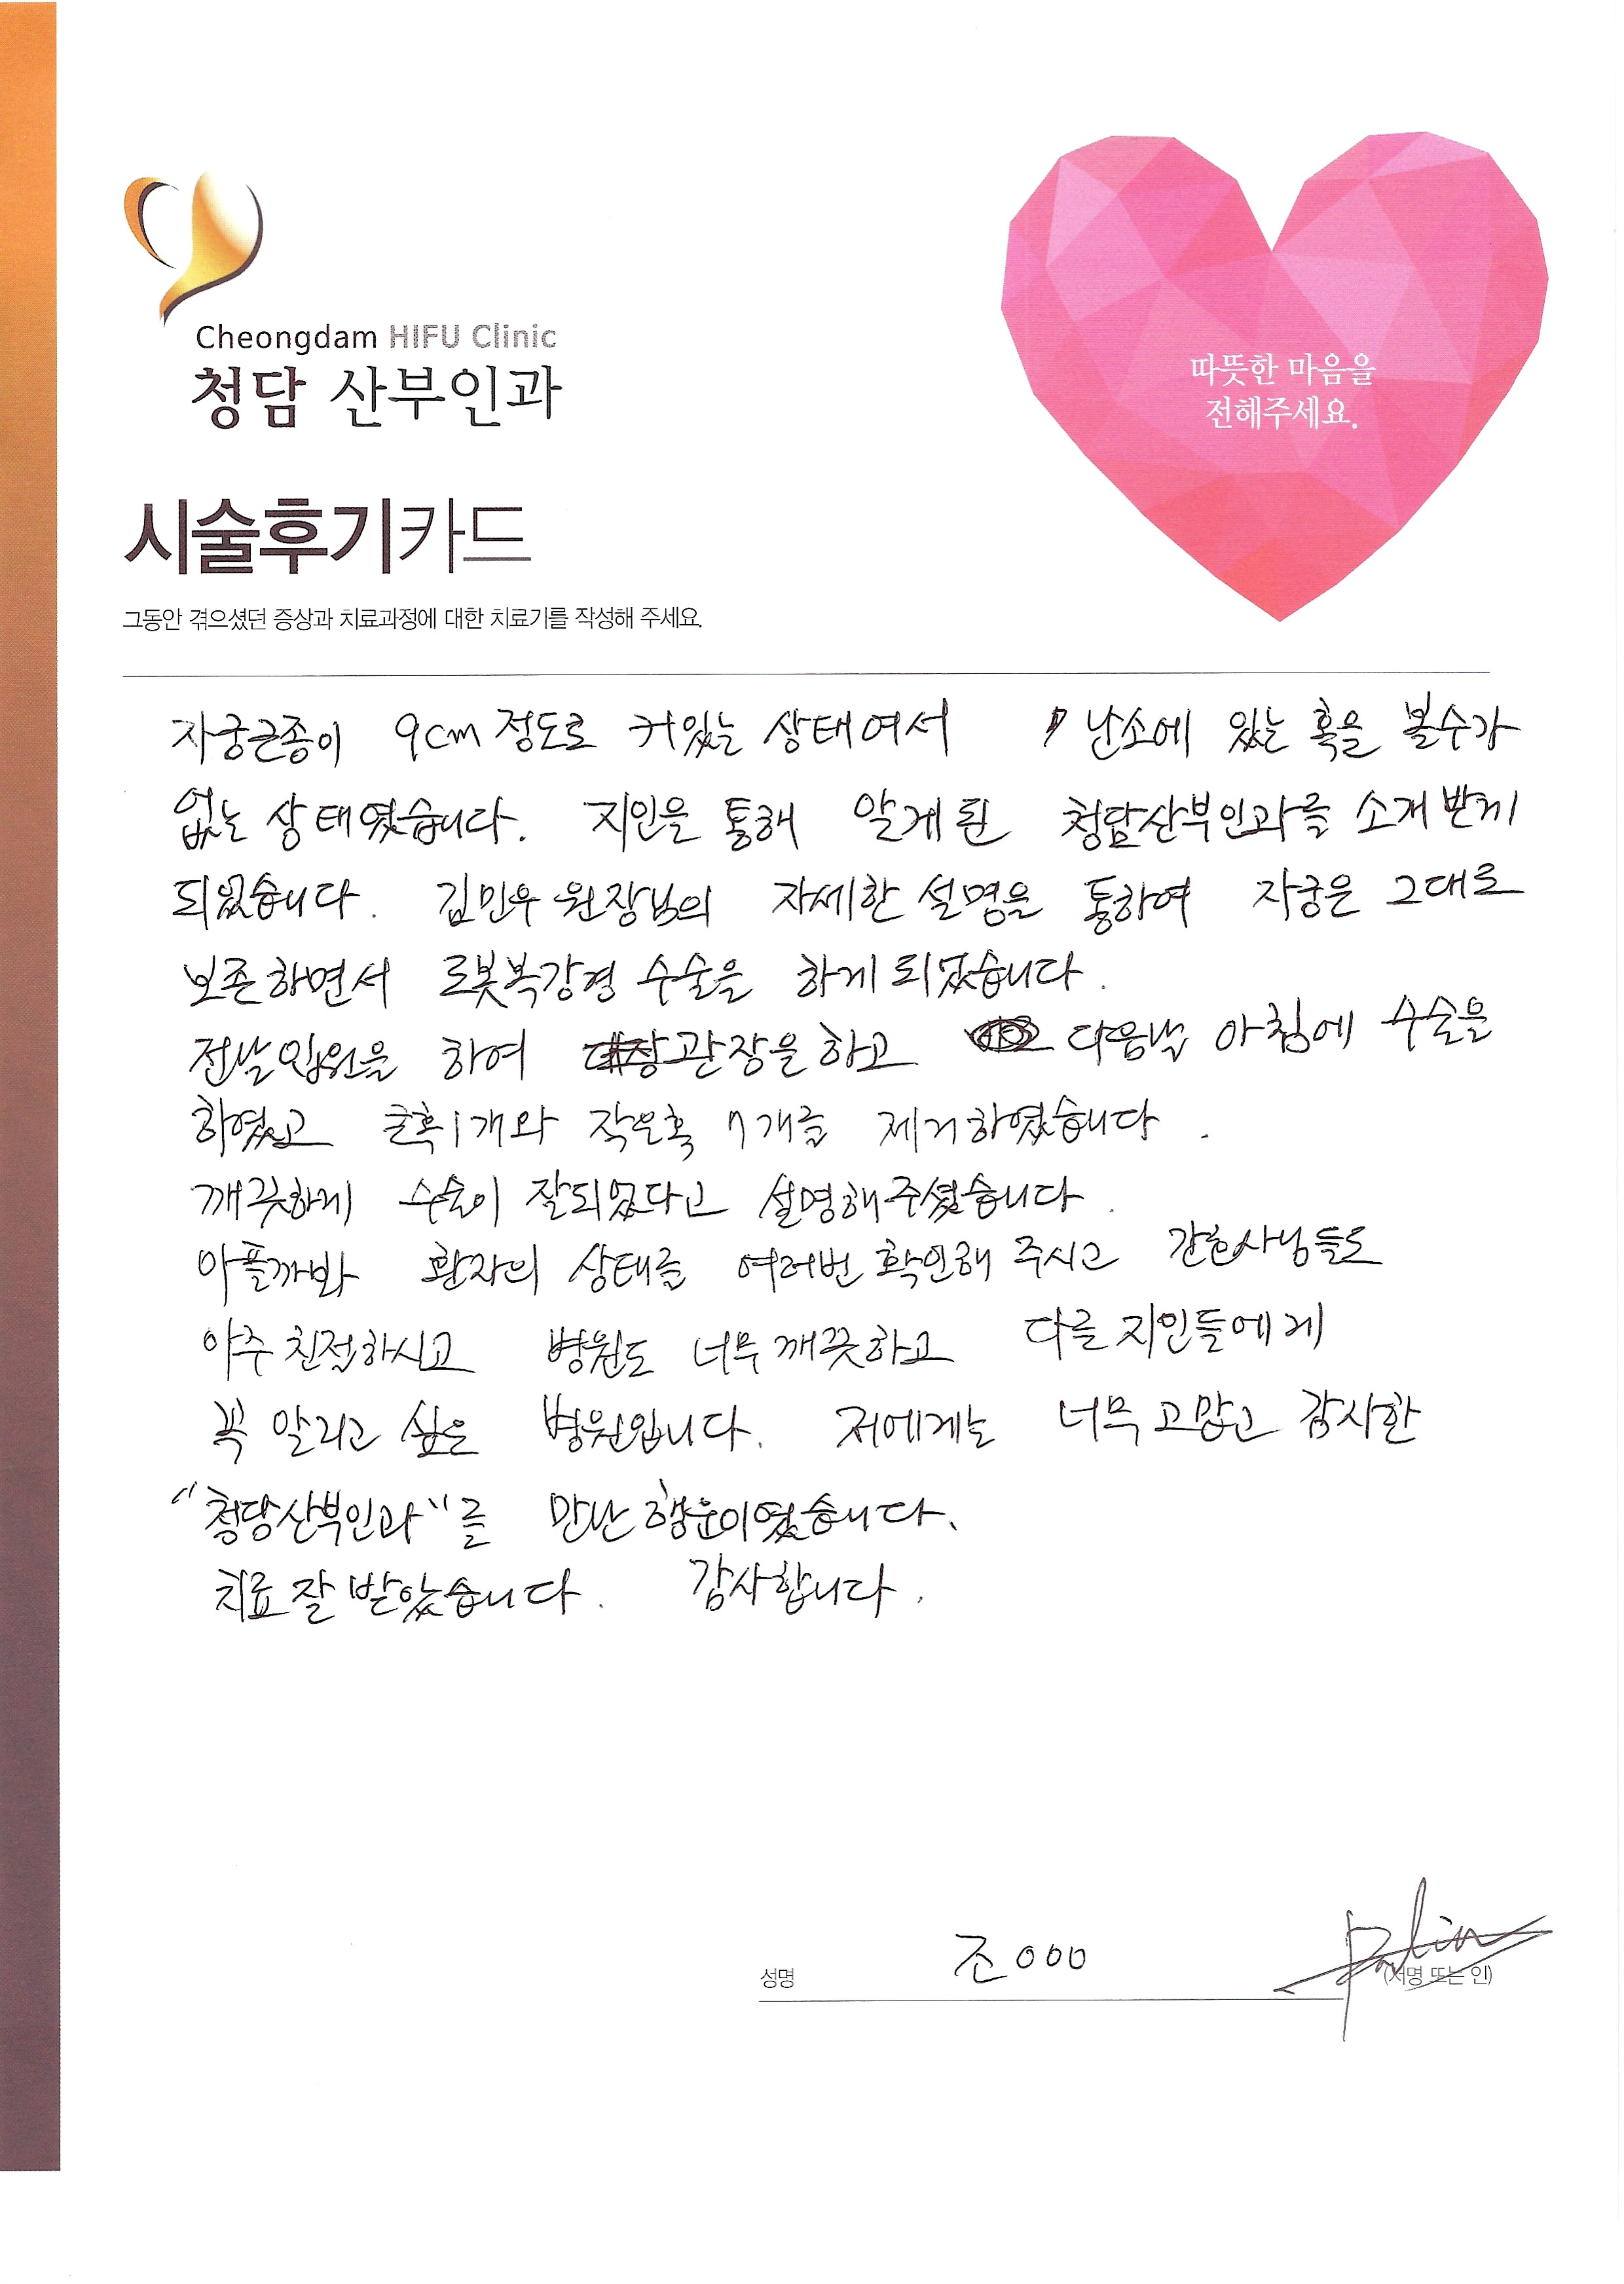 Cheongdam HIFU Clinic
청담 산부인과
따뜻한 마음을
전해주세요.
시술후기카드
그동안 겪으셨던 증상과 치료과정에 대한 치료기를 작성해 주세요.
자궁근종이 9cm 정도로 커있는 상태여서 난소에 있는 혹을 볼수가
없는 상태였습니다. 지인을 통해 알게된 청담산부인과를 소개받게
되었습니다. 김민우 원장님의 자세한 설명을 통하여 자궁은 그대로
보존하면서 로봇복강경 수술을 하게되었습니다.
전날입원을 하여 관장을하고 다음날 아침에 수술을
하였고 큰혹1개와 작은혹 7개를 제거하였습니다.
깨끗하게 수술이 잘되었다고 설명해주셨습니다.
아플까봐 환자의 상태를 여러번 확인해 주시고 간호사님들도
아주 친절하시고 병원도 너무 깨끗하고 다른 지인들에게
꼭 알리고 싶은 병원입니다. 저에게는 너무 고맙고 감사한
"청담산부인과"를 만난 행운이였습니다.
치료 잘 받았습니다. 감사합니다.
성명 조000 (서명 또는 인)